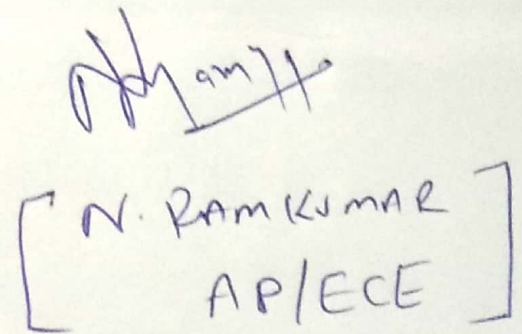 [ N. RAMKUMAR
AP/ECE ]